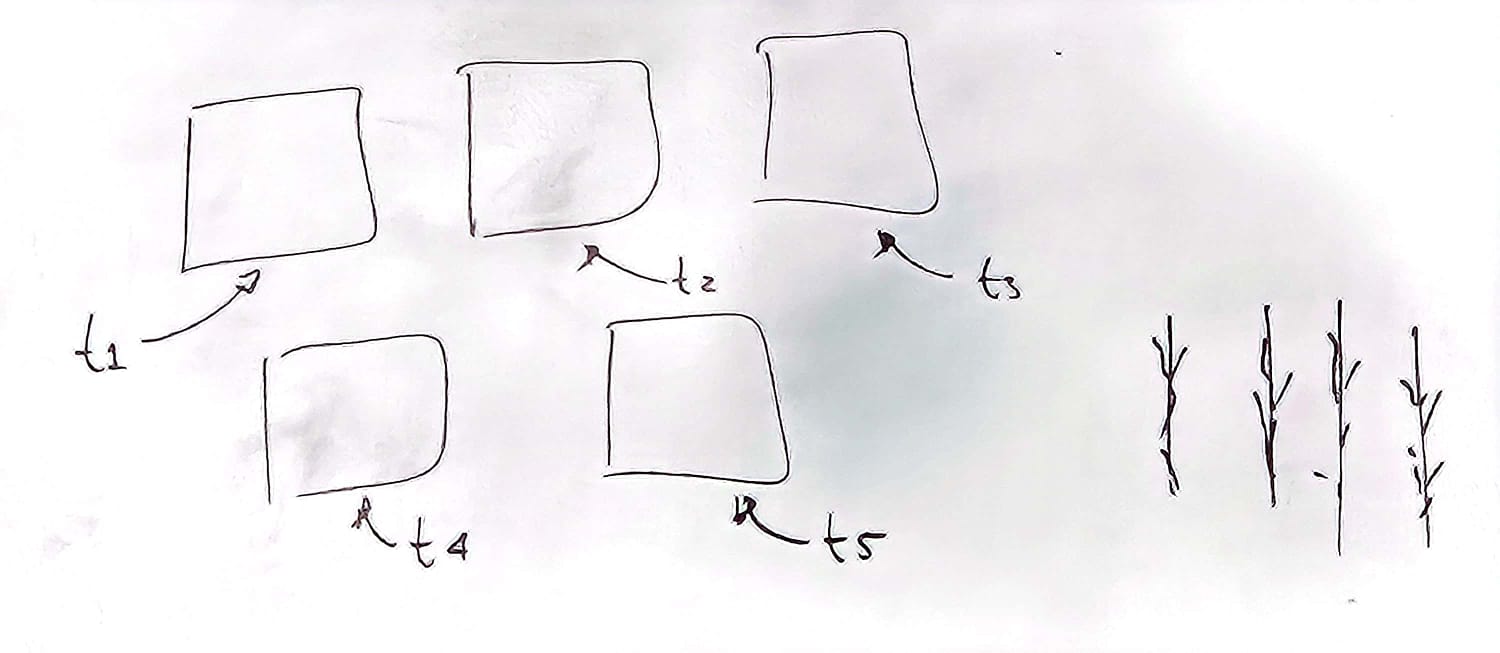 t1
t2
t3
t4
t5